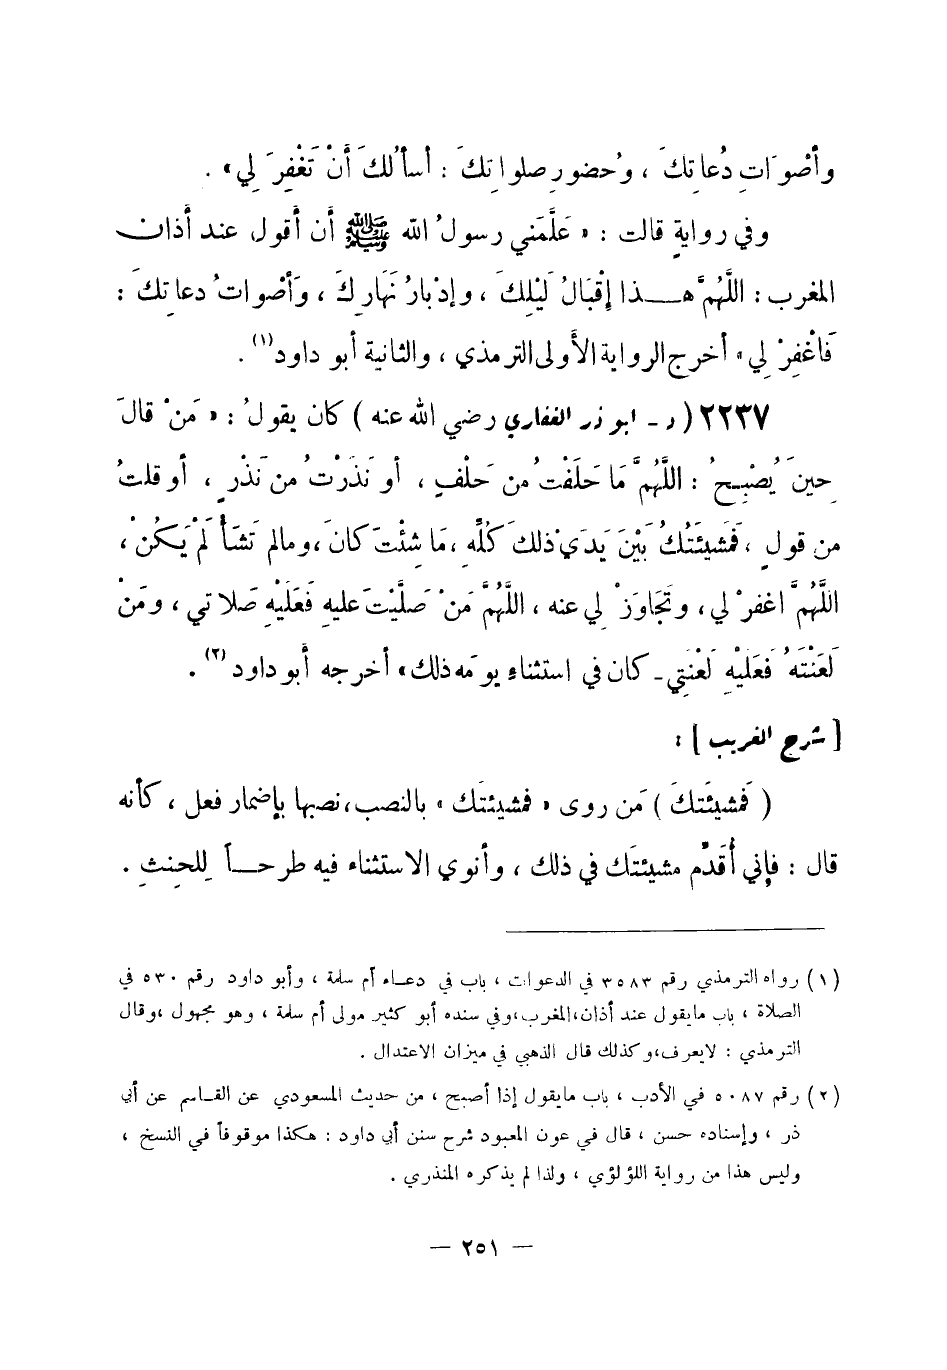 وأصْوَاتِ دُعاتِكَ ، وحُضورِ صلواتِكَ : أسألُكَ أَنْ تَغْفِرَ لي» .
وفي روايةٍ قالت : « عَلَّمَني رسولُ الله ﷺ أن أقول عند أذان
المغرب : اللَّهُمَّ هـذا إقْبَالُ لَيْلِكَ ، وإدْبارُ نَهَارِكَ ، وَأصْواتُ دعاتِكَ :
فَاغْفِرْ لي » أخرج الرواية الأولى الترمذي ، والثانية أبو داود(١) .
٢٢٣٧ ( د - ابو ذر الغفاري رضي الله عنه ) كان يقولُ : « مَنْ قالَ
حِينَ يُصْبِحُ : اللَّهُمَّ مَا حَلَفْتُ من حَلْفٍ ، أو نَذَرْتُ من نَذْرٍ ، أو قلتُ
من قولٍ ، فَمَشِيئَتُكَ بَيْنَ يَدَيْ ذلكَ كُلِّهِ ، مَا شِئْتَ كانَ ، ومالم تَشَأْ لَمْ يَكُنْ ،
اللَّهُمَّ اغفرْ لي ، وتَجَاوَزْ لي عنه ، اللَّهُمَّ مَنْ صَلَّيْتَ عليهِ فَعَلَيْهِ صَلاتي ، ومَنْ
لَعَنْتَهُ فَعَلَيْهِ لَعْنَتي - كان في استثناءِ يومَه ذلك » أخرجه أبو داود(٢) .
[ شرح الغريب ] :
( فَمَشيئَتَكَ ) مَن روى « فمشيئتَك » بالنصب ، نصبها بإضمار فعل ، كأنه
قال : فإني أُقَدِّم مشيئتَك في ذلك ، وأنوي الاستثناء فيه طرحـاً لِلحِنثِ .
(١) رواه الترمذي رقم ٣٥٨٣ في الدعوات ، باب في دعـاء أم سلمة ، وأبو داود رقم ٥٣٠ في
الصلاة ، باب مايقول عند أذان المغرب ، وفي سنده أبو كثير مولى أم سلمة ، وهو مجهول ، وقال
الترمذي : لايعرف ، وكذلك قال الذهبي في ميزان الاعتدال .
(٢) رقم ٥٠٨٧ في الأدب ، باب مايقول إذا أصبح ، من حديث المسعودي عن القـاسم عن أبي
ذر ، وإسناده حسن ، قال في عون المعبود شرح سنن أبي داود : هكذا موقوفاً في النسخ ،
وليس هذا من رواية اللؤلؤي ، ولذا لم يذكره المنذري .
— ٢٥١ —